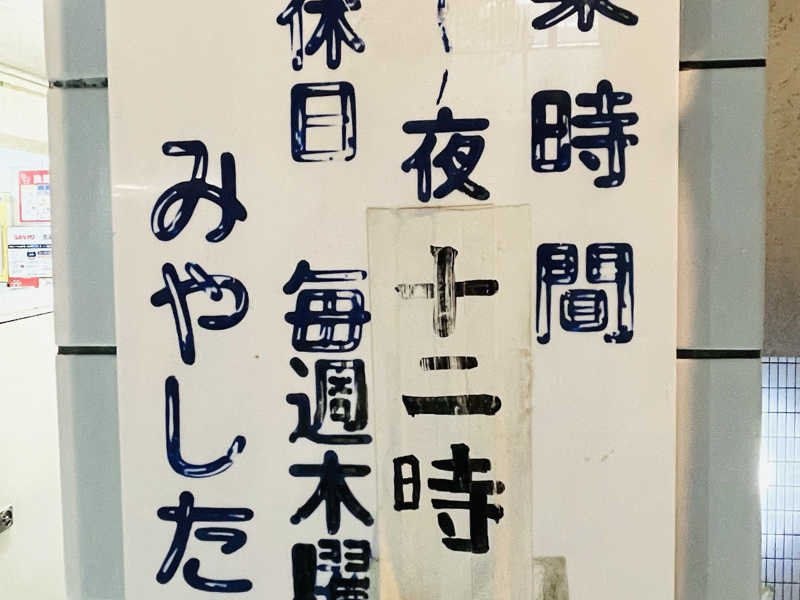 業時間
～夜十二時
休日 毎週木曜
みやした